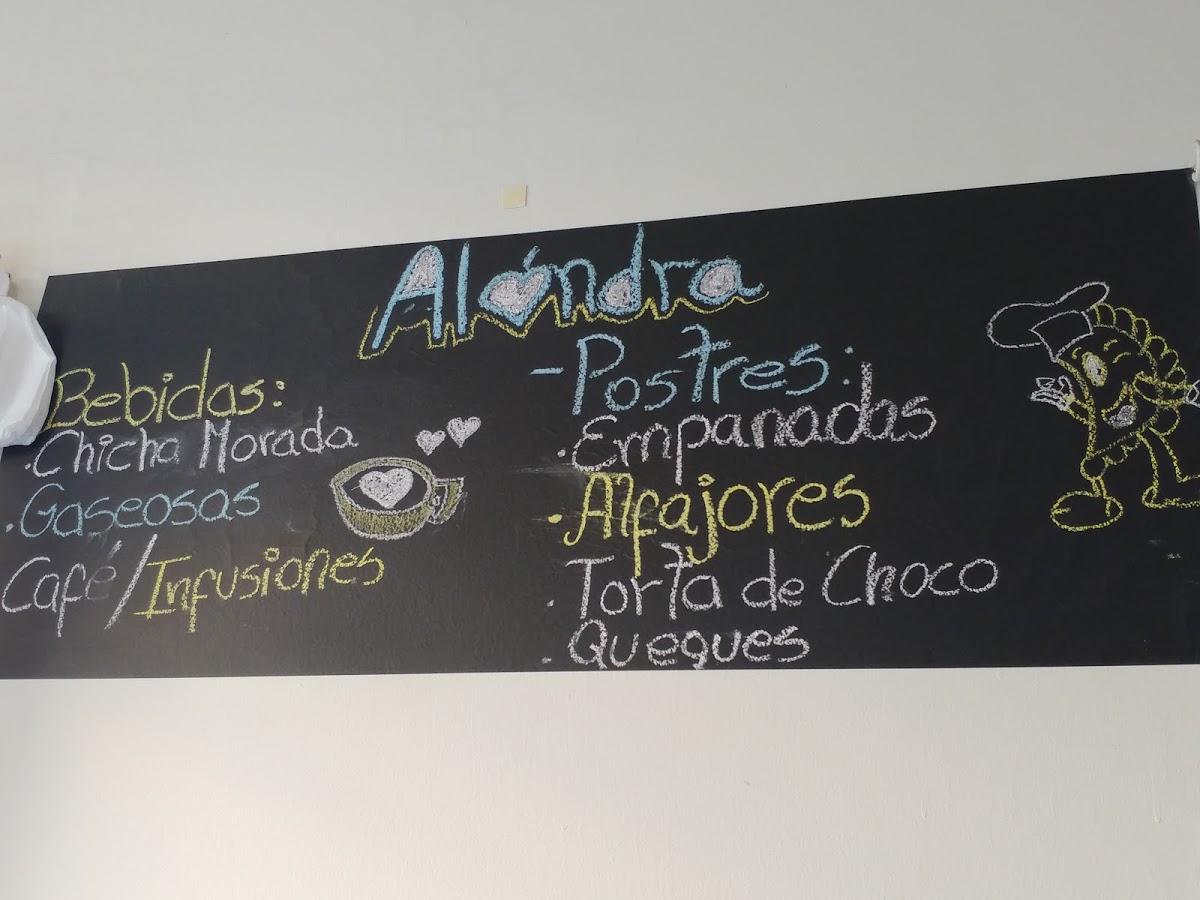 Alóndra
Bebidas:
.Chicha Morada
.Gaseosas
Café/Infusiones
-Postres:
.Empanadas
.Alfajores
.Torta de Choco
.Queques